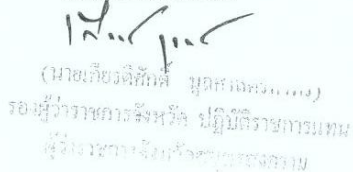 (นายเกียรติศักดิ์
รองผู้ว่าราชการจังหวัด ปฏิบัติราชการแทน
ผู้ว่าราชการจังหวัดสมุทรสงคราม